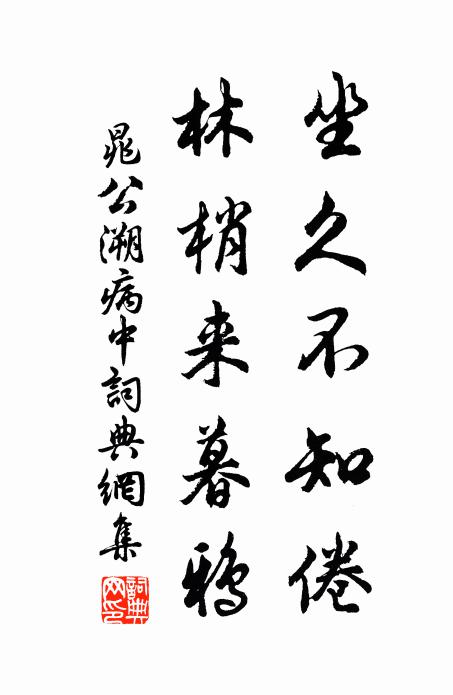 坐久不知倦
林梢来暮鴉
晁公溯病中詞典網集
詞典網印